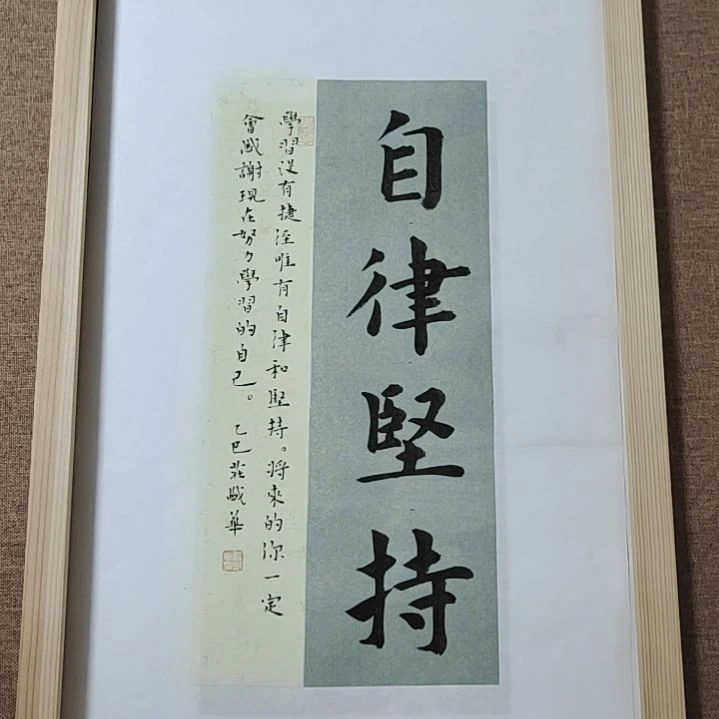 自律堅持
學習没有捷徑唯有自律和堅持。將來的你一定
會感謝現在努力學習的自己。乙巳莊感華